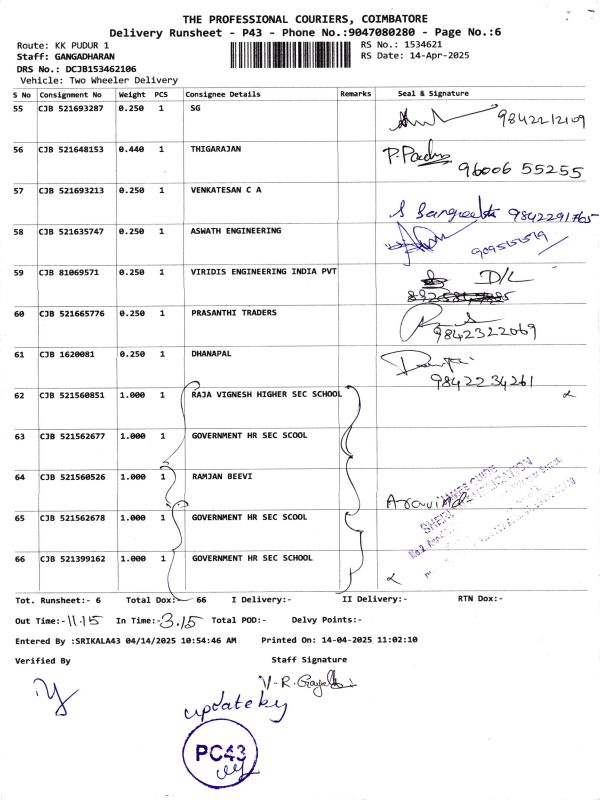 THE PROFESSIONAL COURIERS, COIMBATORE
Delivery Runsheet - P43 - Phone No.:9047080280 - Page No.:6
Route: KK PUDUR 1 RS No.: 1534621
Staff: GANGADHARAN RS Date: 14-Apr-2025
DRS No.: DCJB153462106
Vehicle: Two Wheeler Delivery
S No Consignment No Weight PCS Consignee Details Remarks Seal & Signature
55 CJB 521693287 0.250 1 SG 9842212109
56 CJB 521648153 0.440 1 THIGARAJAN 96006 55255
57 CJB 521693213 0.250 1 VENKATESAN C A S Sangeetha 9842291765
58 CJB 521635747 0.250 1 ASWATH ENGINEERING
59 CJB 81069571 0.250 1 VIRIDIS ENGINEERING INDIA PVT D/L
60 CJB 521665776 0.250 1 PRASANTHI TRADERS 9842322069
61 CJB 1620081 0.250 1 DHANAPAL 98422 34261
62 CJB 521560851 1.000 1 RAJA VIGNESH HIGHER SEC SCHOOL
63 CJB 521562677 1.000 1 GOVERNMENT HR SEC SCOOL
64 CJB 521560526 1.000 1 RAMJAN BEEVI Aravind
65 CJB 521562678 1.000 1 GOVERNMENT HR SEC SCOOL
66 CJB 521399162 1.000 1 GOVERNMENT HR SEC SCHOOL
Tot. Runsheet:- 6 Total Dox:- 66 I Delivery:- II Delivery:- RTN Dox:-
Out Time:- 11.15 In Time:- 3.15 Total POD:- Delvy Points:-
Entered By :SRIKALA43 04/14/2025 10:54:46 AM Printed On: 14-04-2025 11:02:10
Verified By Staff Signature
update by
PC43